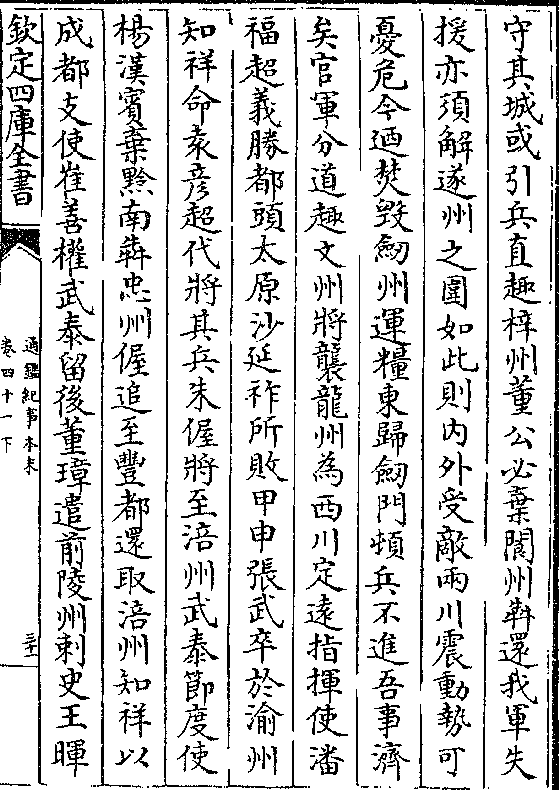 守其城或引兵直趣梓州董公必棄閬州犇還我軍失
援亦須解遂州之圍如此則内外受敵兩川震動勢可
憂危今迺焚毀劒州運糧東歸劒門頓兵不進吾事濟
矣官軍分道趣文州將襲龍州為西川定遠指揮使潘
福超義勝都頭太原沙延祚所敗甲申張武卒於渝州
知祥命袁彦超代將其兵朱偓將至涪州武泰節度使
楊漢賓棄黔南犇忠州偓追至豐都還取涪州知祥以
成都支使崔善權武泰留後董璋遣前陵州刺史王暉
欽定四庫全書
通鑑紀事本末
卷四十一下
三十一